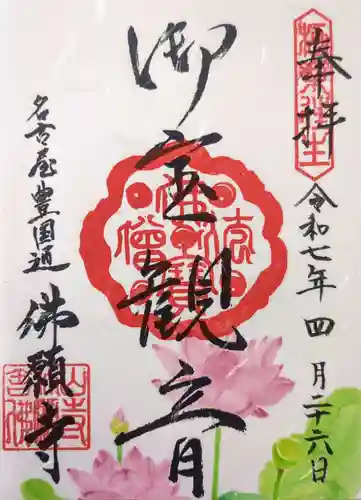 奉拝
令和七年四月二十六日
御 観音
名古屋豊国通
佛願寺